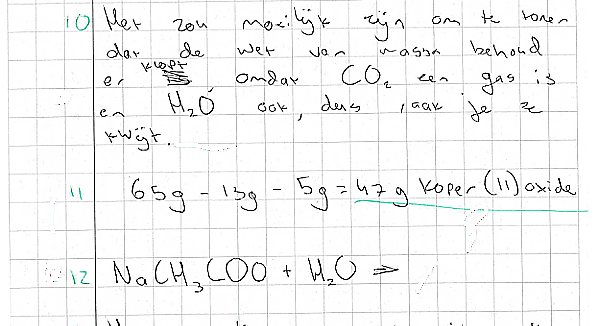 10 Het zou moeilijk zijn om te tonen
dat de wet van massa behoud
er klopt omdat CO₂ een gas is
en H₂O ook, dus raak je ze
kwijt.
11 65g - 13g - 5g = 47 g koper (II) oxide
12 NaCH₃COO + H₂O ⇒